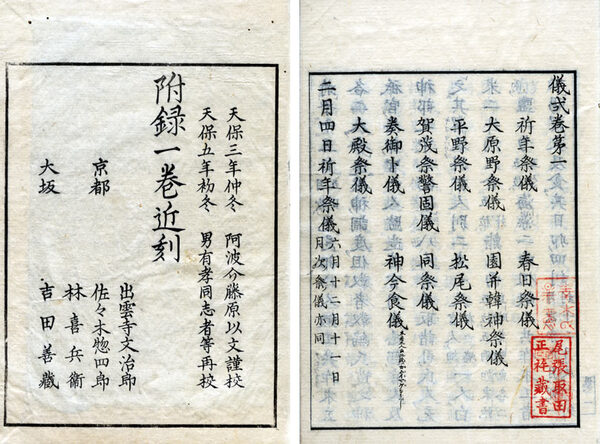 儀式卷第一
祈年祭儀 春日祭儀
大原野祭儀 園并韓神祭儀
平野祭儀 松尾祭儀
賀茂祭警固儀 同祭儀
奏御卜儀 神今食儀
大殿祭儀
二月四日祈年祭儀 六月十二月十一日月次祭儀亦同
尾張取田
正祗蔵書
天保三年仲冬 阿波介藤原以文謹校
天保五年初冬 男有孝同志者等再校
附録一巻近刻
京都 出雲寺文治郎
佐々木惣四郎
林喜兵衛
大坂 吉田善蔵